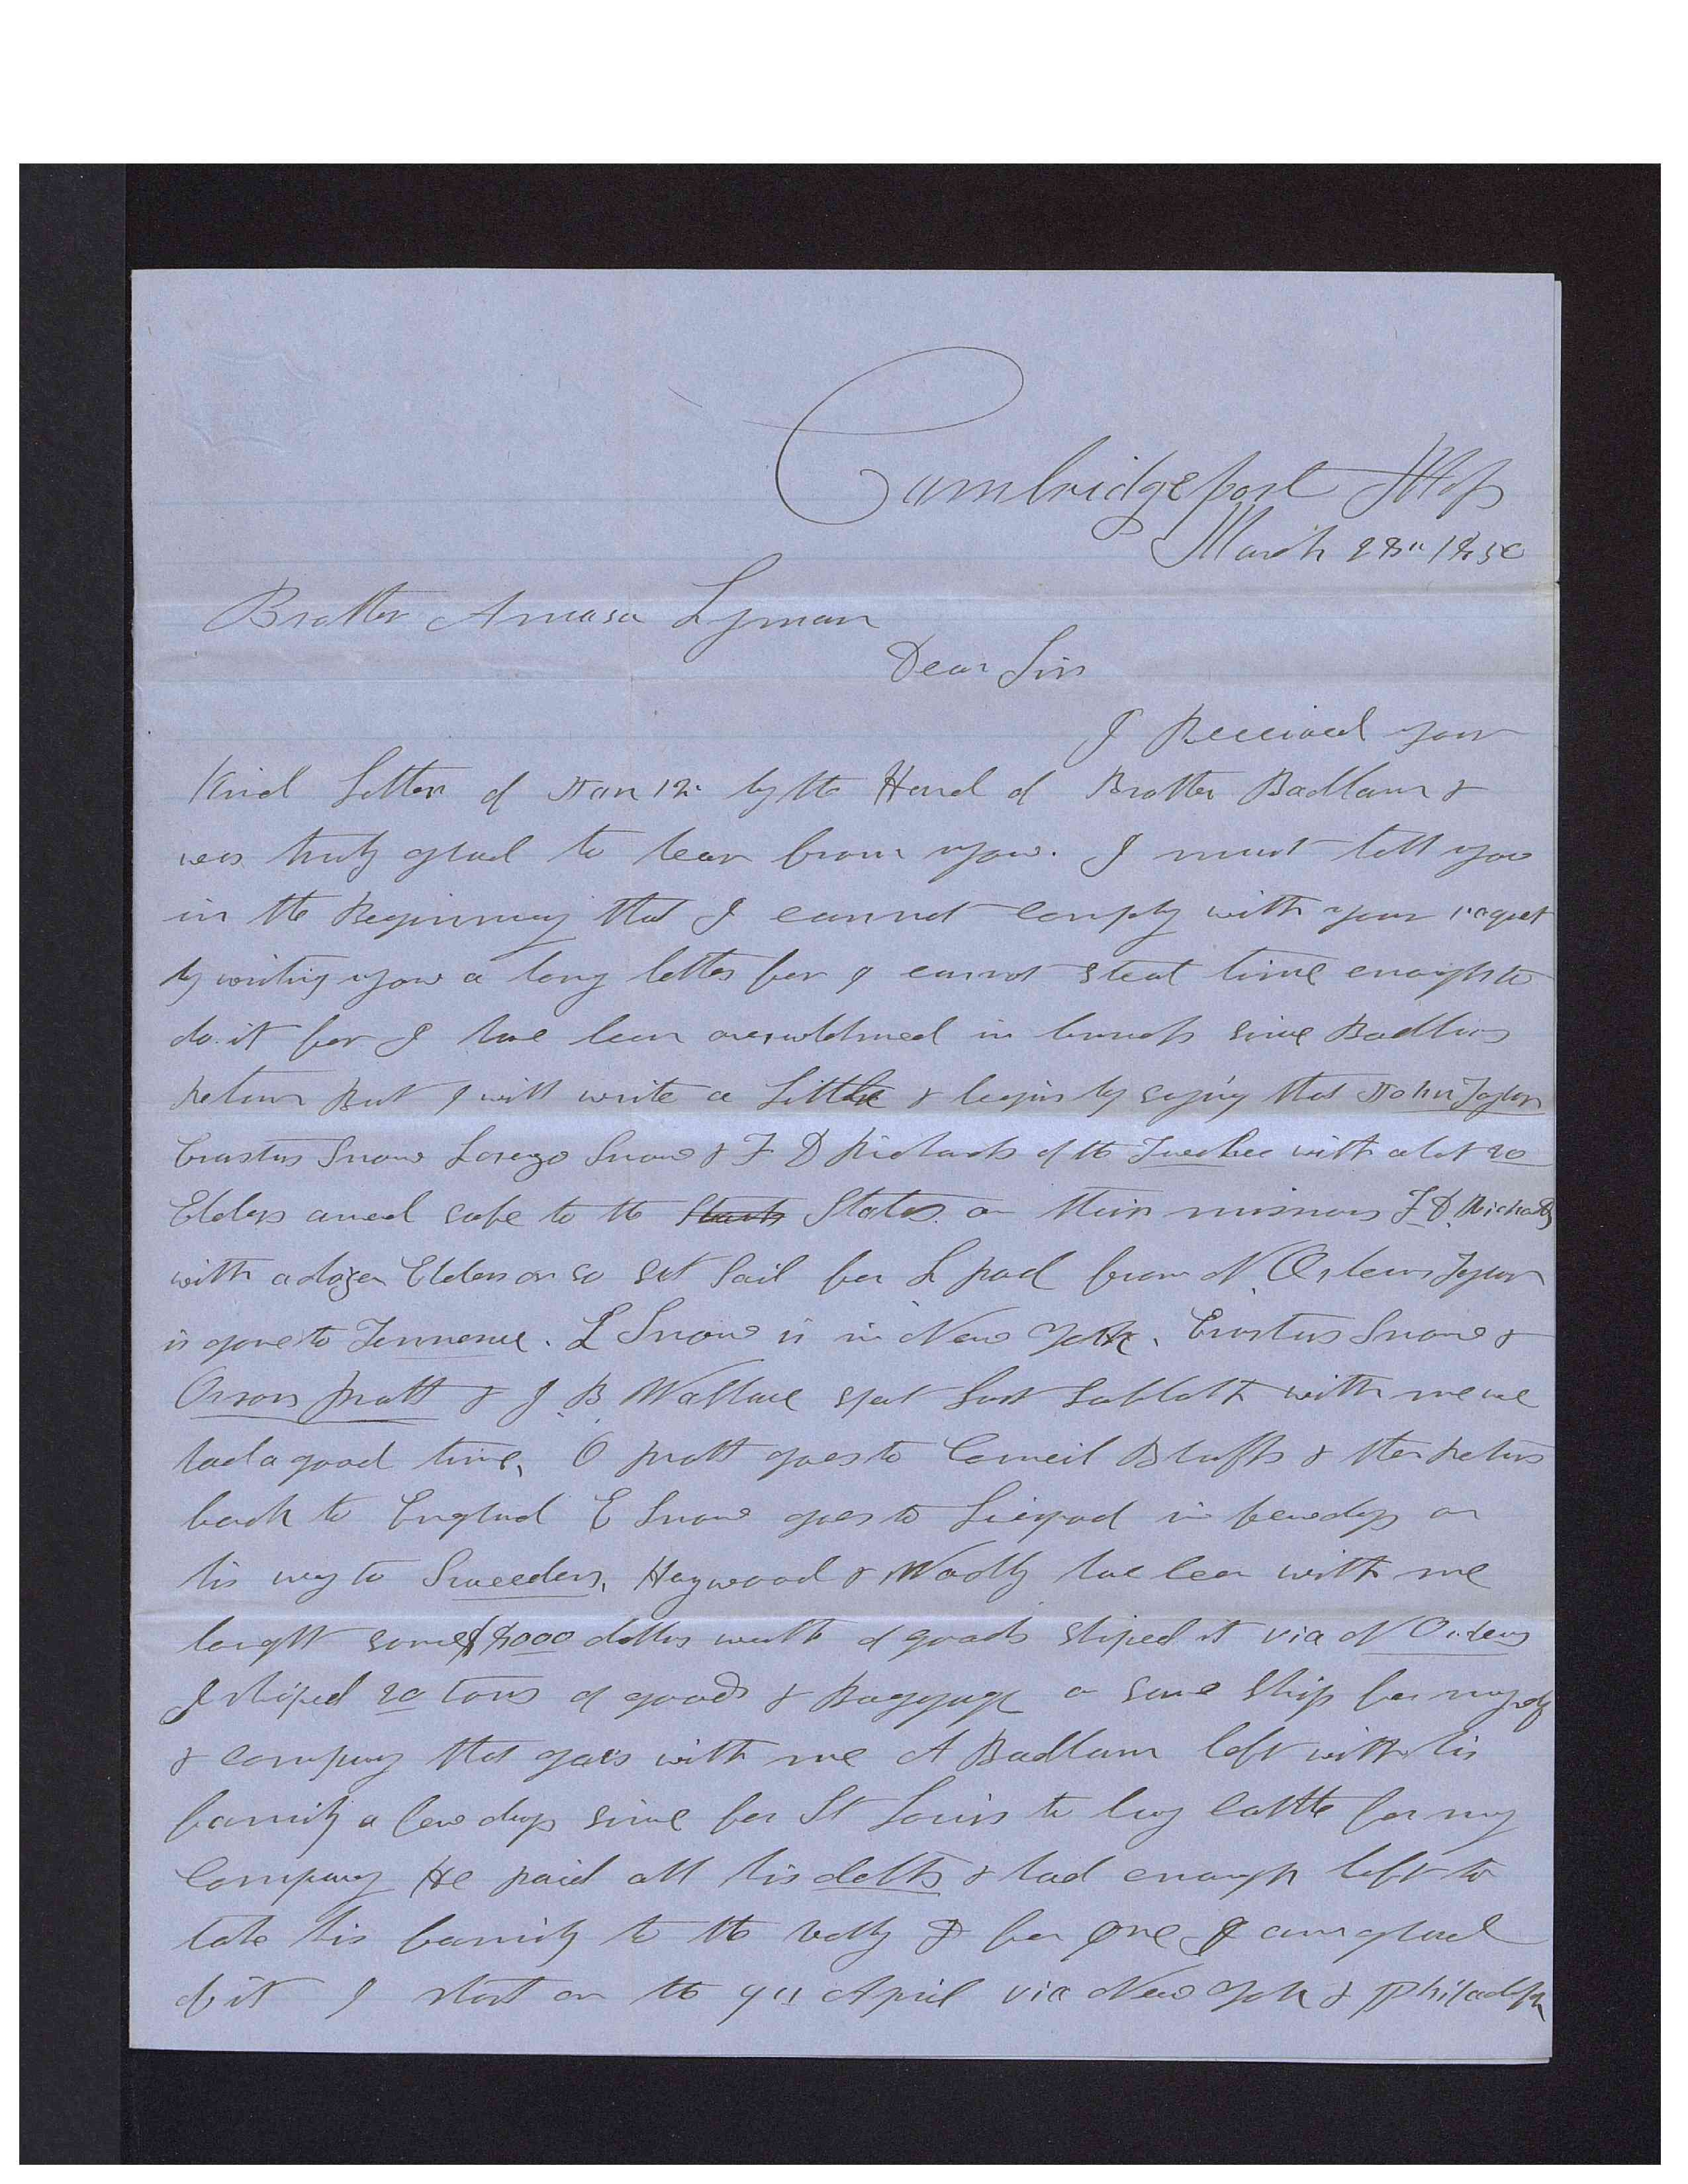 Cambridgeport Mass
March 28" 1850
Brother Amasa Lyman
Dear Sir
I Received your
Kind Letter of Jan 12. by the Hand of Brother Badlam &
was truly glad to hear from you. I must tell you
in the Beginning that I cannot comply with your request
by writing you a long letter for I cannot steal time enough to
do it for I have been overwhelmed in business since Badlams
return But I will write a Little & begin by saying that John Taylor
Erastus Snow Lorenzo Snow & F D Richards of the Twelve with about 20
Elders arived safe to the States on their missions F D. Richards
with a dozen Elders or so set sail for L pool from N. Orleans Taylor
is gone to . L Snow is in New York. Erastus Snow &
Orson Pratt & J B Wallace spent Last Sabbath with me we
had a good time, O Pratt goes to Council Bluffs & then returns
back to England E Snow goes to Liverpool in few days on
his way to Sweeden, Haywood & Woolly have been with me
bought some $ dollars worth of goods shiped it via N Orleans
I shiped 20 tons of goods & Baggage on same Ship for myself
& company that goes with me A Badlam left with his
family a few days since for St Louis to buy cattle for my
Company He paid all his debts & had enough left to
take his family to the vally & for one I am glad
of it I start on the 9" April via New York & Philadelph